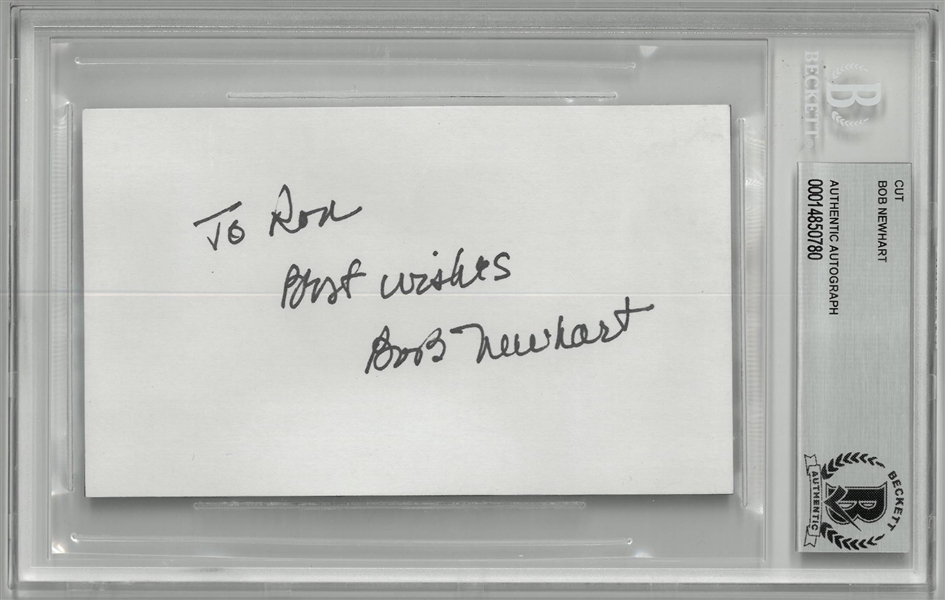 To Ron
Best wishes
Bob Newhart
BECKETT
B
CUT
BOB NEWHART
AUTHENTIC AUTOGRAPH
00014850780
BECKETT
B
AUTHENTIC